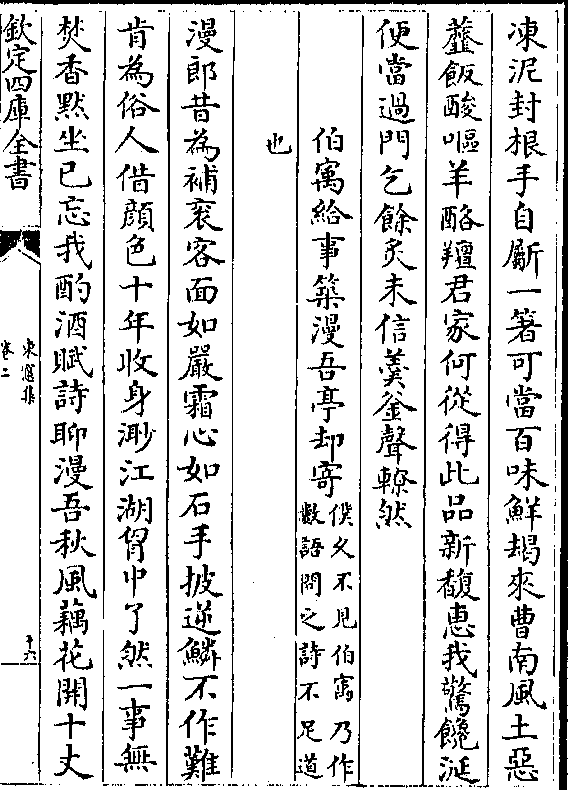 凍泥封根手自斸一箸可當百味鮮朅來曹南風土惡
虀飯酸嘔羊酪羶君家何從得此品新馥惠我驚饞涎
便當過門乞餘炙未信羮釡聲轑然
伯㝢給事築漫吾亭却寄
僕久不見伯㝢乃作
數語問之詩不足道
也
漫郎昔為補衮客面如嚴霜心如石手披逆鱗不作難
肯為俗人借顔色十年收身渺江湖胷中了然一事無
焚香黙坐已忘我酌酒賦詩聊漫吾秋風藕花開十丈
欽定四庫全書
東窻集
卷二
十六